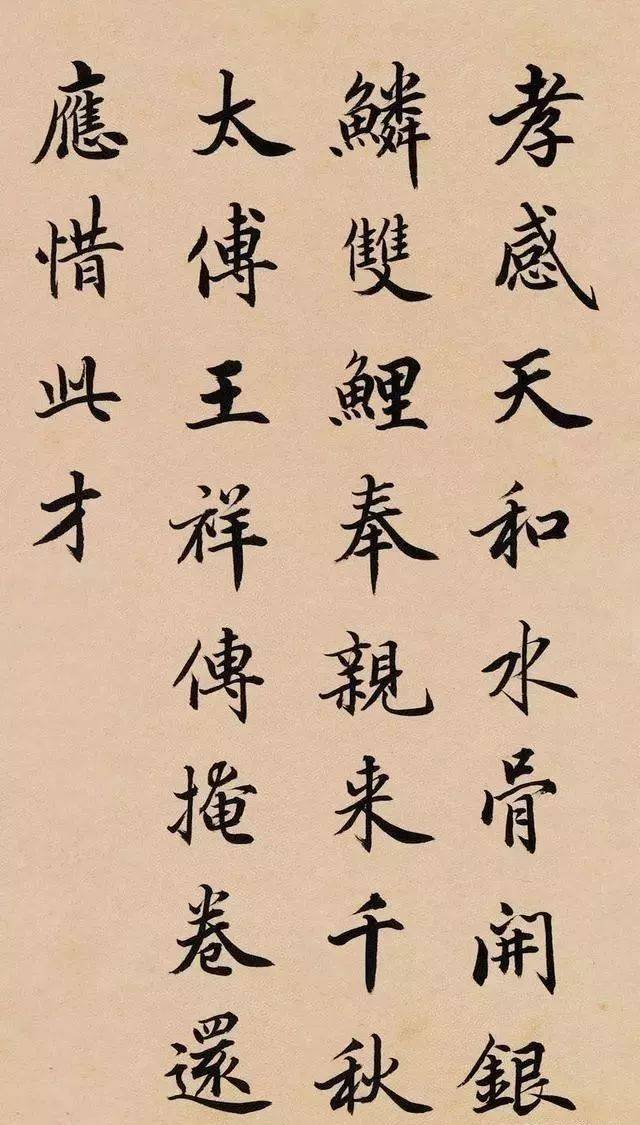 孝感天和水骨開銀
鱗雙鯉奉親来千秋
太傅王祥傳掩卷還
應惜此才